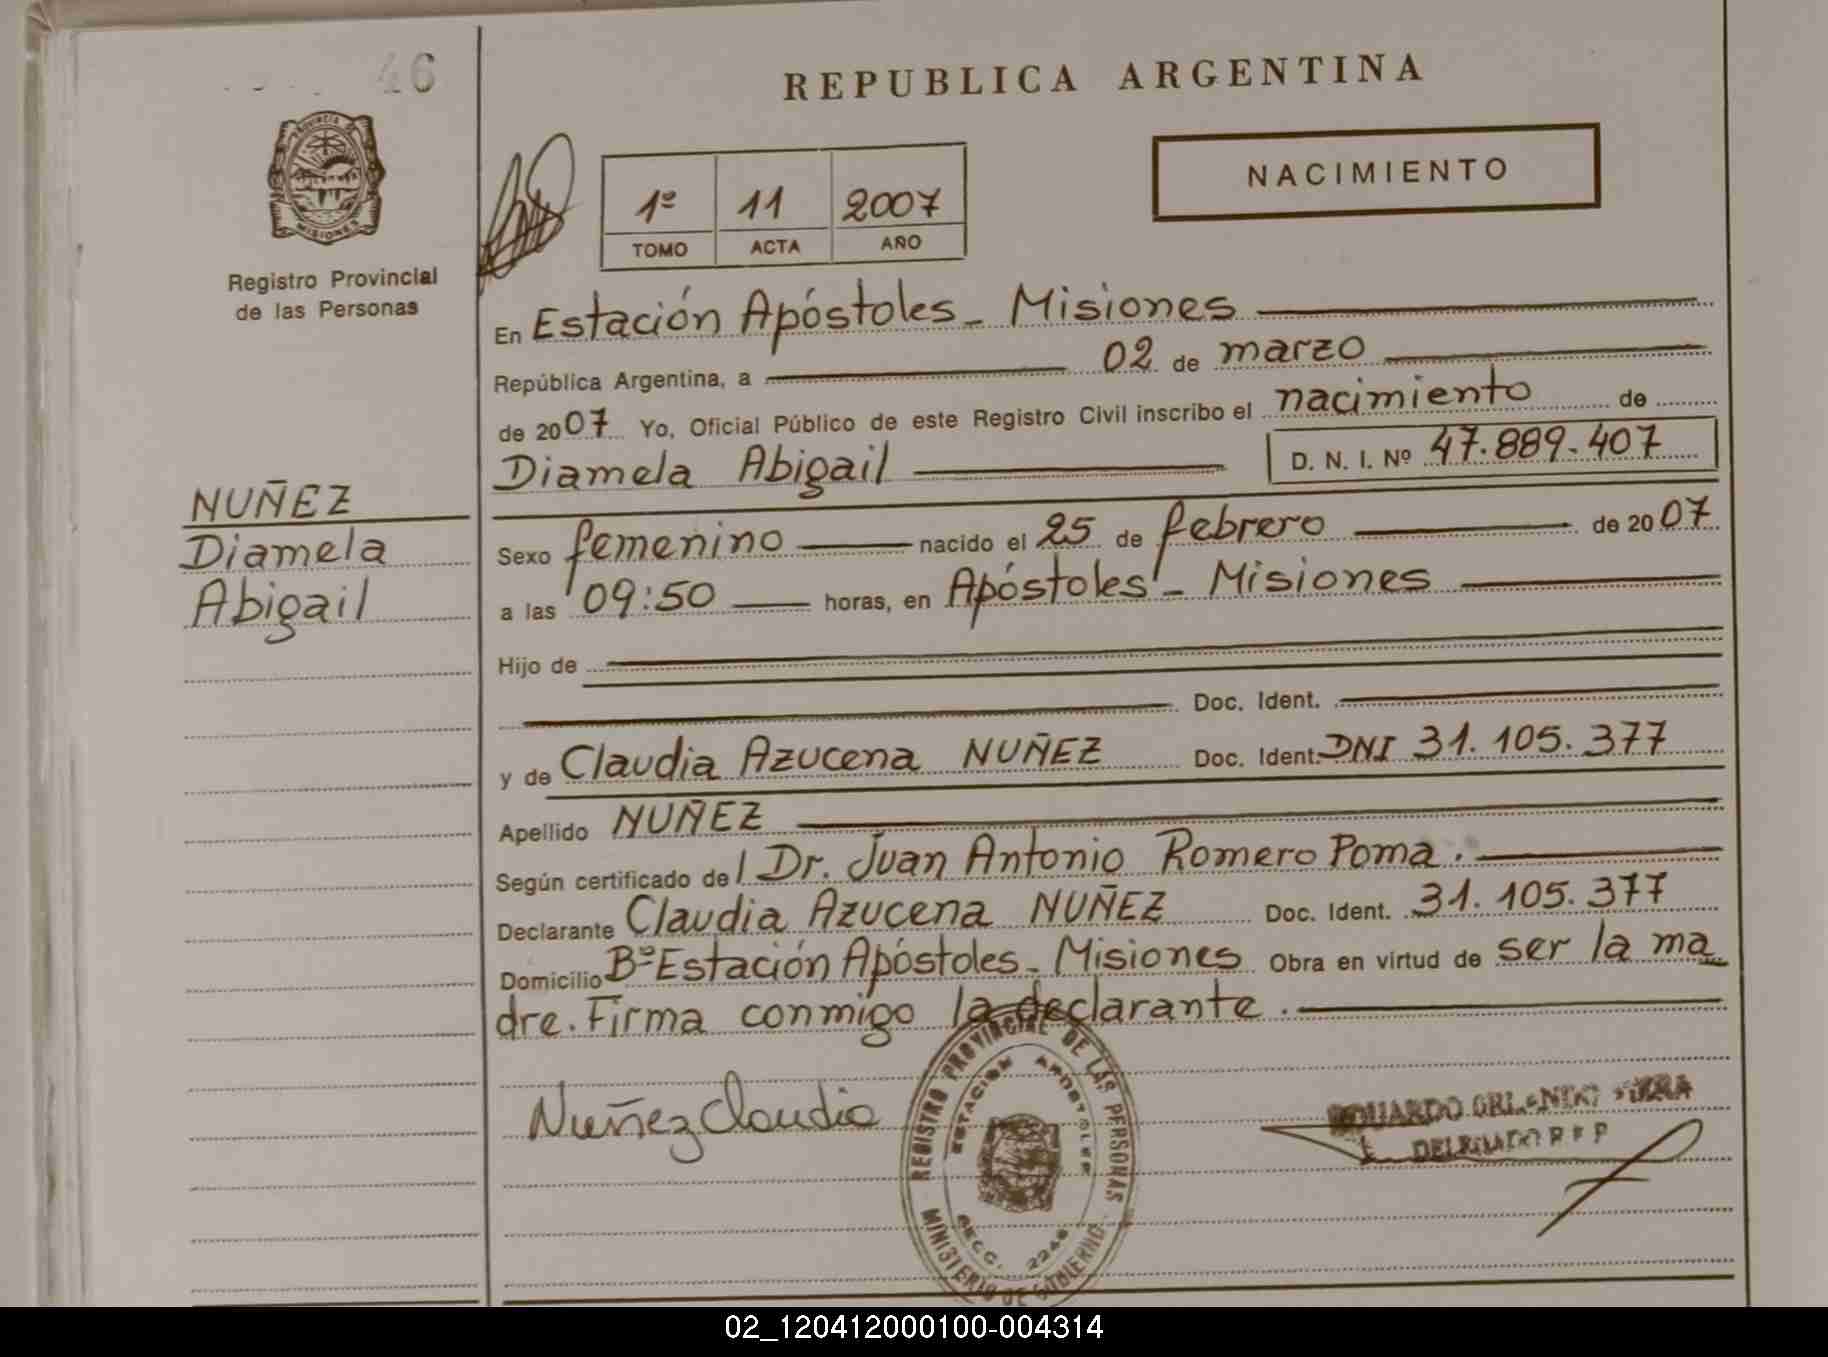 46
REPUBLICA ARGENTINA
PROVINCIA DE
MISIONES
Registro Provincial
de las Personas
1º 11 2007
TOMO ACTA AÑO
NACIMIENTO
En Estación Apóstoles - Misiones
República Argentina, a 02 de marzo
de 2007 Yo, Oficial Público de este Registro Civil inscribo el nacimiento de
Diamela Abigail D. N. I. Nº 47.889.407
NUÑEZ
Diamela
Abigail
Sexo femenino nacido el 25 de febrero de 2007
a las 09:50 horas, en Apóstoles - Misiones
Hijo de
Doc. Ident.
y de Claudia Azucena NUÑEZ Doc. Ident. DNI 31.105.377
Apellido NUÑEZ
Según certificado del Dr. Juan Antonio Romero Poma.
Declarante Claudia Azucena NUÑEZ Doc. Ident. 31.105.377
Domicilio Bº Estación Apóstoles - Misiones Obra en virtud de ser la ma
dre. Firma conmigo la declarante.
Nuñez Claudia
REGISTRO PROVINCIAL DE LAS PERSONAS
ESTACION APOSTOLES
SECC. 2246
MINISTERIO DE GOBIERNO
EDUARDO
DELEGADO R P P
02_120412000100-004314